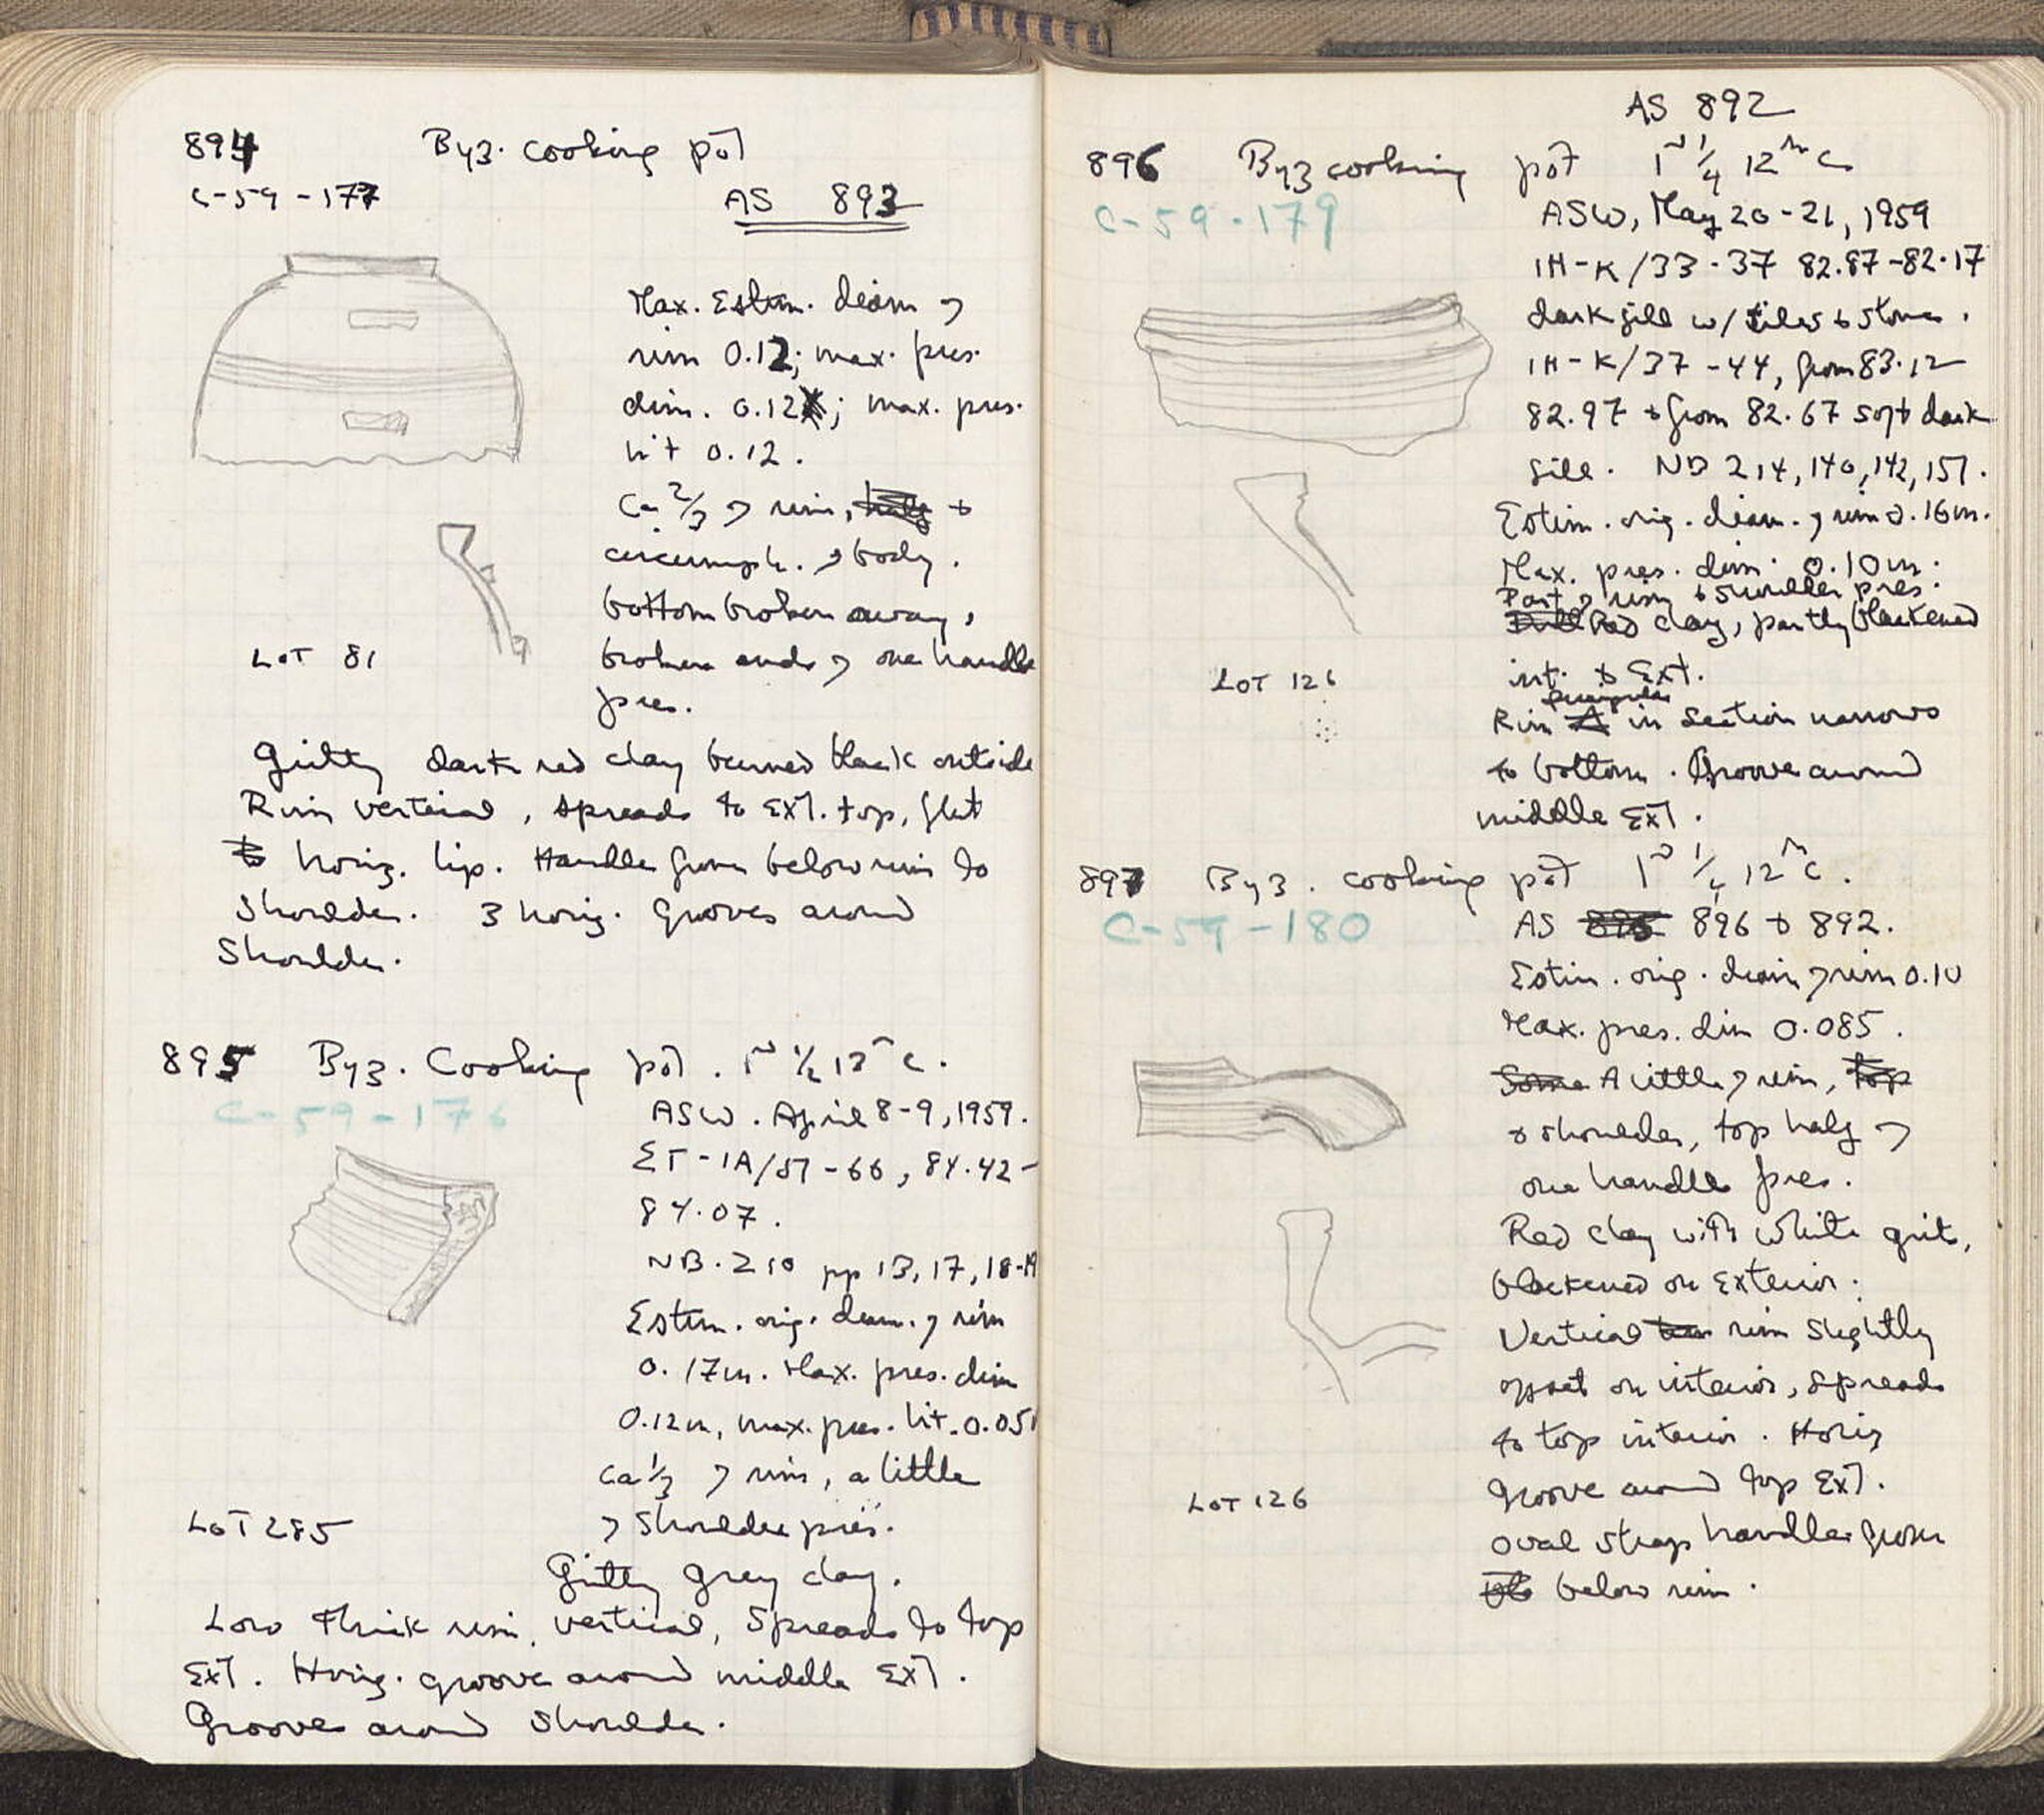 894 Byz. cooking pot
C-59-177
AS 893
Max. Estim. diam of
rim 0.12; max. pres.
dim. 0.12; max. pres.
hit 0.12.
Ca 2/3 of rim, half +
circumph. of body.
bottom broken away,
broken ends of one handle
pres.
LOT 81
Gritty dark red clay burned black outside
Rim vertical, spreads to ext. top, flat
to horiz. lip. Handle from below rim to
shoulder. 3 horiz. grooves around
shoulder.
895 Byz. Cooking pot. 1st 1/2 12th C.
C-59-176
ASW. April 8-9, 1959.
ET-1A/57-66, 84.42-
84.07.
NB. 210 pp 13, 17, 18-19
Estim. orig. diam. of rim
0.17m. Max. pres. dim
0.12m, max. pres. hit. 0.051
Ca 1/3 of rim, a little
of shoulder pres.
LOT 285
Gritty grey clay.
Low thick rim, vertical, spreads to top
Ext. Horiz. groove around middle ext.
Groove around shoulder.
AS 892
896 Byz cooking pot 1st 1/4 12th C
C-59-179
ASW, May 20-21, 1959
1H-K/33-37 82.87-82.17
dark fill w/ tiles & stones.
1H-K/37-44, from 83.12
82.97 & from 82.67 soft dark
fill. NB 214, 140, 142, 151.
Estim. orig. diam. of rim 0.16m.
Max. pres. dim. 0.10m.
Part of rim & shoulder pres.
Red clay, partly blackened
int. & Ext.
LOT 126
Rim triangular in section narrows
to bottom. Groove around
middle Ext.
897 Byz. cooking pot 1st 1/4 12th C.
C-59-180
AS 895 896 & 892.
Estim. orig. diam of rim 0.10
Max. pres. dim 0.085.
Some A little of rim, top
& shoulder, top half of
one handle pres.
Red clay with white grits,
blackened on exterior.
Vertical rim slightly
offset on interior, spreads
to top interior. Horiz
groove around top Ext.
LOT 126
oval strap handle from
below rim.